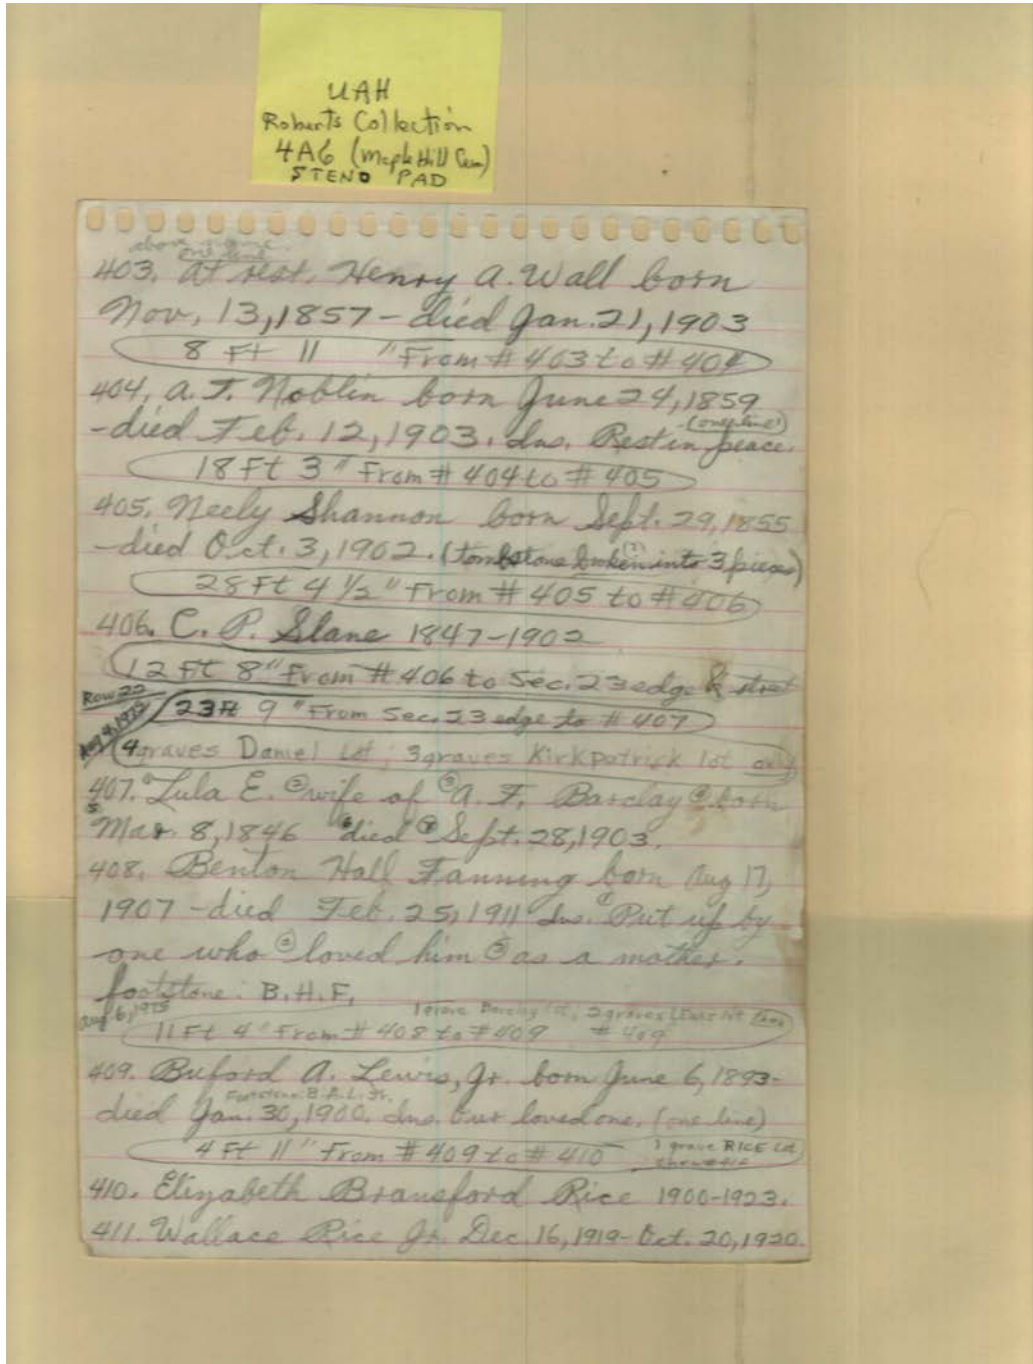 UAH
Roberts Collection
4A6 (Maple Hill Cem)
STENO PAD
above name
one line
403. At rest. Henry A. Wall born
Nov. 13, 1857 - died Jan. 21, 1903
8 Ft 11 " From # 403 to # 404
404. A. J. Noblin born June 24, 1859
(one line)
- died Feb. 12, 1903. Ins. Rest in peace.
18 Ft 3 " From # 404 to # 405
405. Neely Shannon born Sept. 29, 1855
- died Oct. 3, 1902. (tombstone broken into 3 pieces)
28 Ft 4 1/2 " From # 405 to # 406
406. C. P. Slane 1847-1902
12 Ft 8" From # 406 to Sec. 23 edge & street
Row 22
Aug 4, 1975
23 Ft 9 " From Sec. 23 edge to # 407
4 graves Daniel Lot; 3 graves Kirkpatrick lot
407. Lula E. ② wife of ③ A. F. Barclay ④ born
5 Mar. 8, 1846 6 died ⑦ Sept. 28, 1903.
408. Benton Hall Fanning born Aug 17,
1907 - died Feb. 25, 1911 Ins. ① Put up by
one who ② loved him ③ as a mother.
footstone: B.H.F.
Aug 6, 1975
1 grave Barclay lot, 2 graves Lewis lot
11 Ft 4 " From # 408 to # 409 # 409
409. Buford A. Lewis, Jr. born June 6, 1893-
Footstone: B.A.L. Jr.
died Jan. 30, 1900. Ins. Our loved one. (one line)
4 Ft 11 " From # 409 to # 410
1 grave RICE Lot
410. Elizabeth Bransford Rice 1900-1923.
411. Wallace Rice Jr. Dec. 16, 1919 - Oct. 20, 1920.